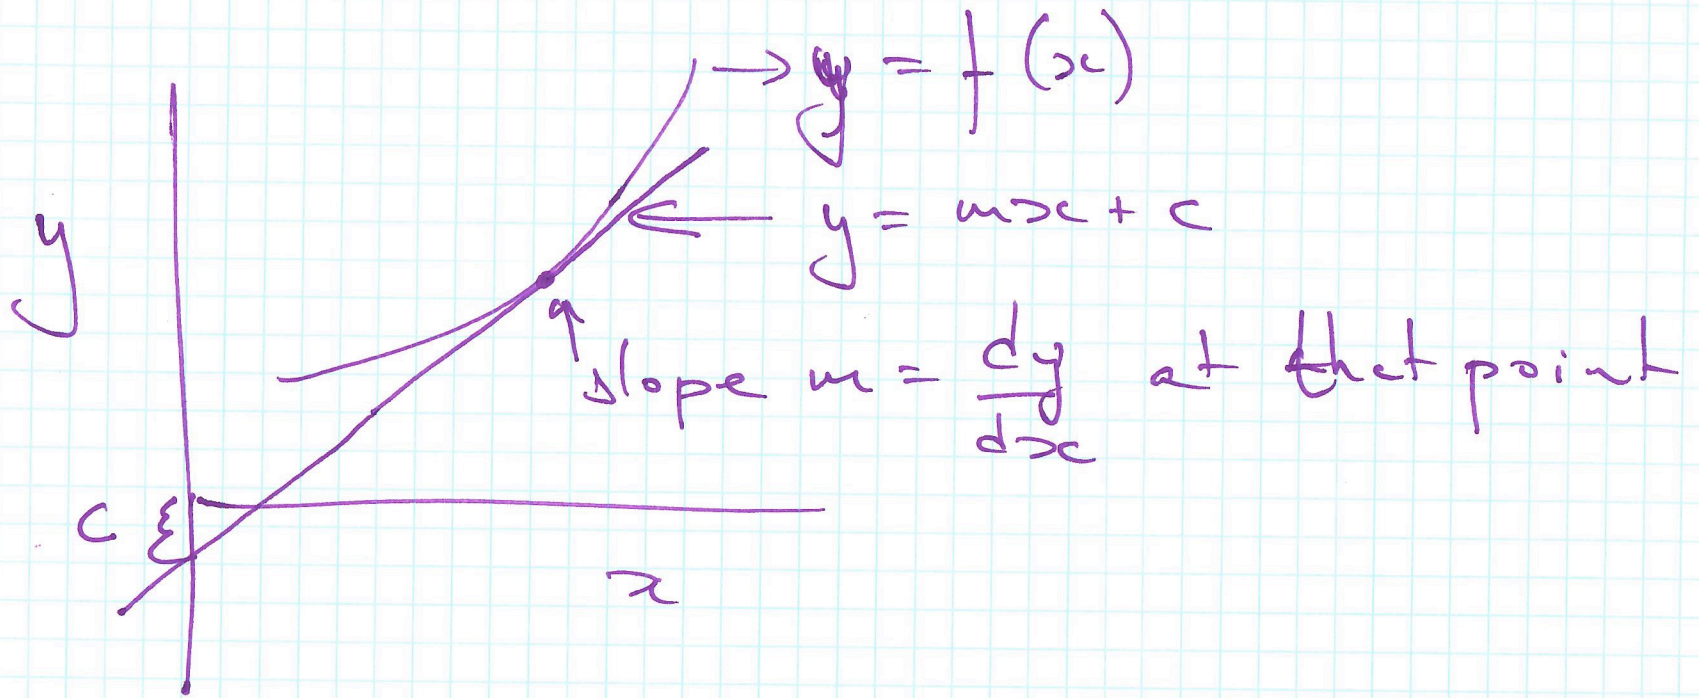 y = f(x)
y
y = mx + c
slope m = dy/dx at that point
c
x